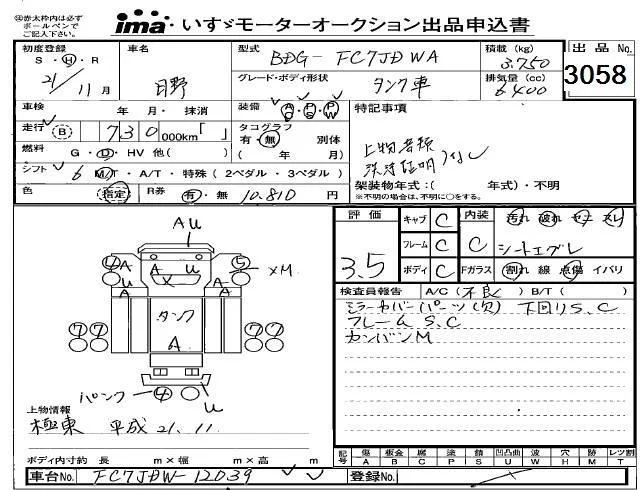 ㊟赤太枠内は必ず
ボールペンで
ご記入下さい。
ima・いすゞモーターオークション出品申込書
初度登録
S・H・R
21/11月
車名
日野
型式
BDG-FC7JDWA
グレード・ボディ形状
タンク車
積載(kg)
3.750
排気量(cc)
6400
出品No.
3058
車検 年 月・抹消
走行 B 730 000km「 」
燃料 G・D・HV 他( )
シフト 6 M/T・A/T・特殊(2ペダル・3ペダル)
色 指定 R券 有・無 10.810 円
装備 A/C P/S P/W
タコグラフ
有・無 別体
( 年 月)
特記事項
上物書類
洗浄証明 なし
架装物年式:( 年式)・不明
※不明の場合は、不明に○をする。
評価
3.5
キャブ C
フレーム C
ボディ C
内装 C
汚れ 破れ コゲ スレ
シートエグレ
Fガラス 割れ 線 点傷 イバリ
検査員報告 A/C(不良) B/T( )
ミラーカバーパーツ(欠) 下回りS、C
フレームS.C
カンバンM
AU
4 A A 5
U U U ×M
A X A
タンク
7 7 7 7
A
パンク 4
U
上物情報
極東 平成21.11
記号 傷A 板金B 腐C 塗P 錆S 凹凸曲U 波W 穴H 跡M レツ割T
ボディ内寸約 長 m×幅 m×高 m
車台No. FC7JDW-12039
登録No.